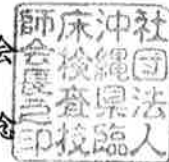 社団法人
沖縄県臨
床検査技
師会長之印
会